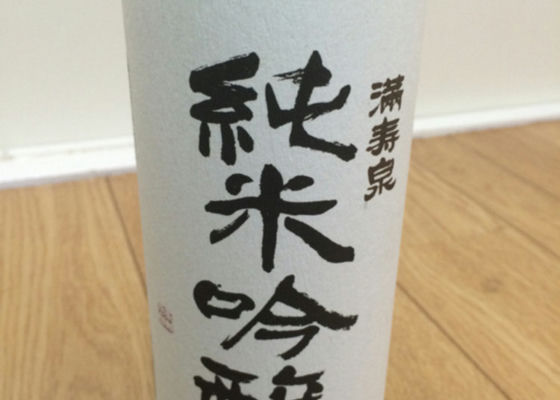 満寿泉
純米吟醸